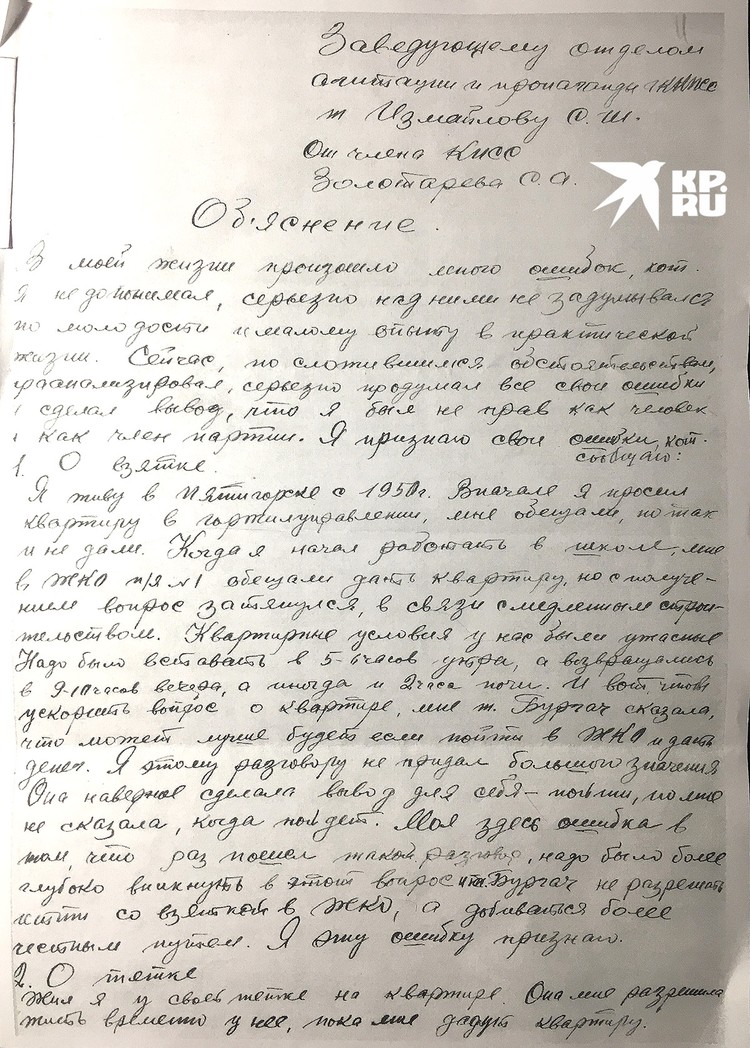 11
Заведующему отделом
агитации и пропаганды ГККПСС
т Измайлову С.Ш.
От члена КПСС
Золотарева С.А.
KP.
RU
Об'яснение.
В моей жизни произошло много ошибок, кот.
я недопонимал, серьезно над ними не задумывался
по молодости и малому опыту в практической
жизни. Сейчас, по сложившимся обстоятельствам,
проанализировал, серьезно продумал все свои ошибки
и сделал вывод, что я был не прав как человек
и как член партии. Я признаю свои ошибки, кот.
сообщаю:
1. О взятке.
Я живу в Пятигорске с 1950г. Вначале я просил
квартиру в горжилуправлении, мне обещали, но так
и не дали. Когда я начал работать в школе, мне
в ЖКО п/я №1 обещали дать квартиру, но с получе-
нием вопрос затянулся, в связи с медленным строи-
тельством. Квартирные условия у нас были ужасные
Надо было вставать в 5-6 часов утра, а возвращались
в 9-10 часов вечера, а иногда и 2 часа ночи. И вот, чтобы
ускорить вопрос о квартире, мне т. Бургач сказала,
что может лучше будет если пойти в ЖКО и дать
денег. Я этому разговору не придал большого значения
Она наверное сделала вывод для себя - пойти, но мне
не сказала, когда пойдет. Моя здесь ошибка в
том, что раз пошел такой разговор, надо было более
глубоко вникнуть в этот вопрос и т. Бургач не разрешать
итти со взяткой в ЖКО, а добиваться более
честным путем. Я эту ошибку признаю.
2. О тетке
Жил я у своей тетки на квартире. Она мне разрешила
жить временно у нее, пока мне дадут квартиру.